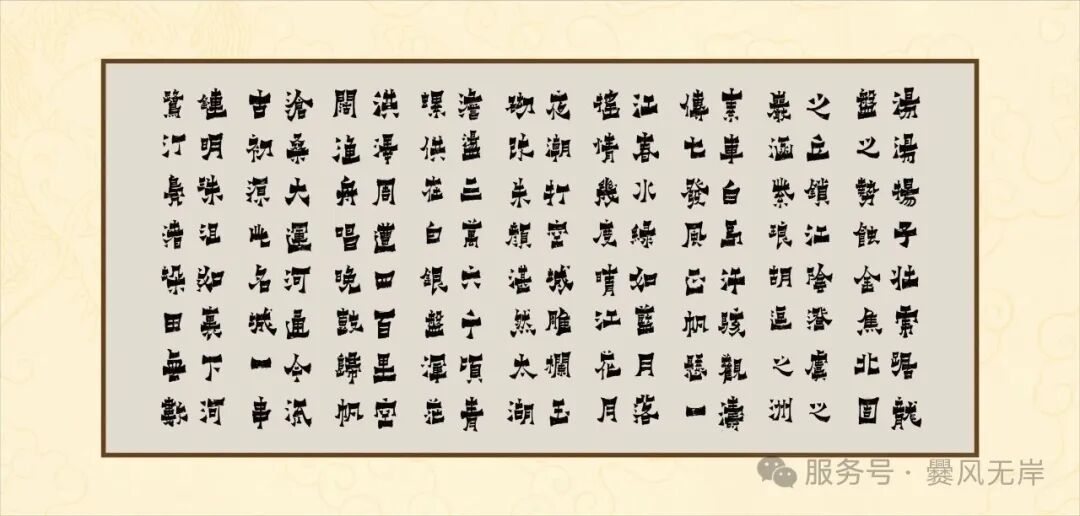 湯湯揚子壯踞龍
盤之勢蝕金焦北固
之丘鎖江陰澄虞之
巖涵紫琅胡逗之洲
素車白馬汗駭觀濤
傳七發風正帆懸一
江春水綠如藍月落
搖情幾度晴江花月
夜潮打空城雕欄玉
砌改朱顏湛然太湖
澹盪三萬六千頃青
螺供在白銀盤渾茫
洪澤周遭田百里空
闊漁舟唱晚鼓歸帆
滄桑大運河通今流
古初源此名城一串
鏈明珠沮洳裏下河
鷺汀鳧渚垛田無數
服务号·爨风无岸